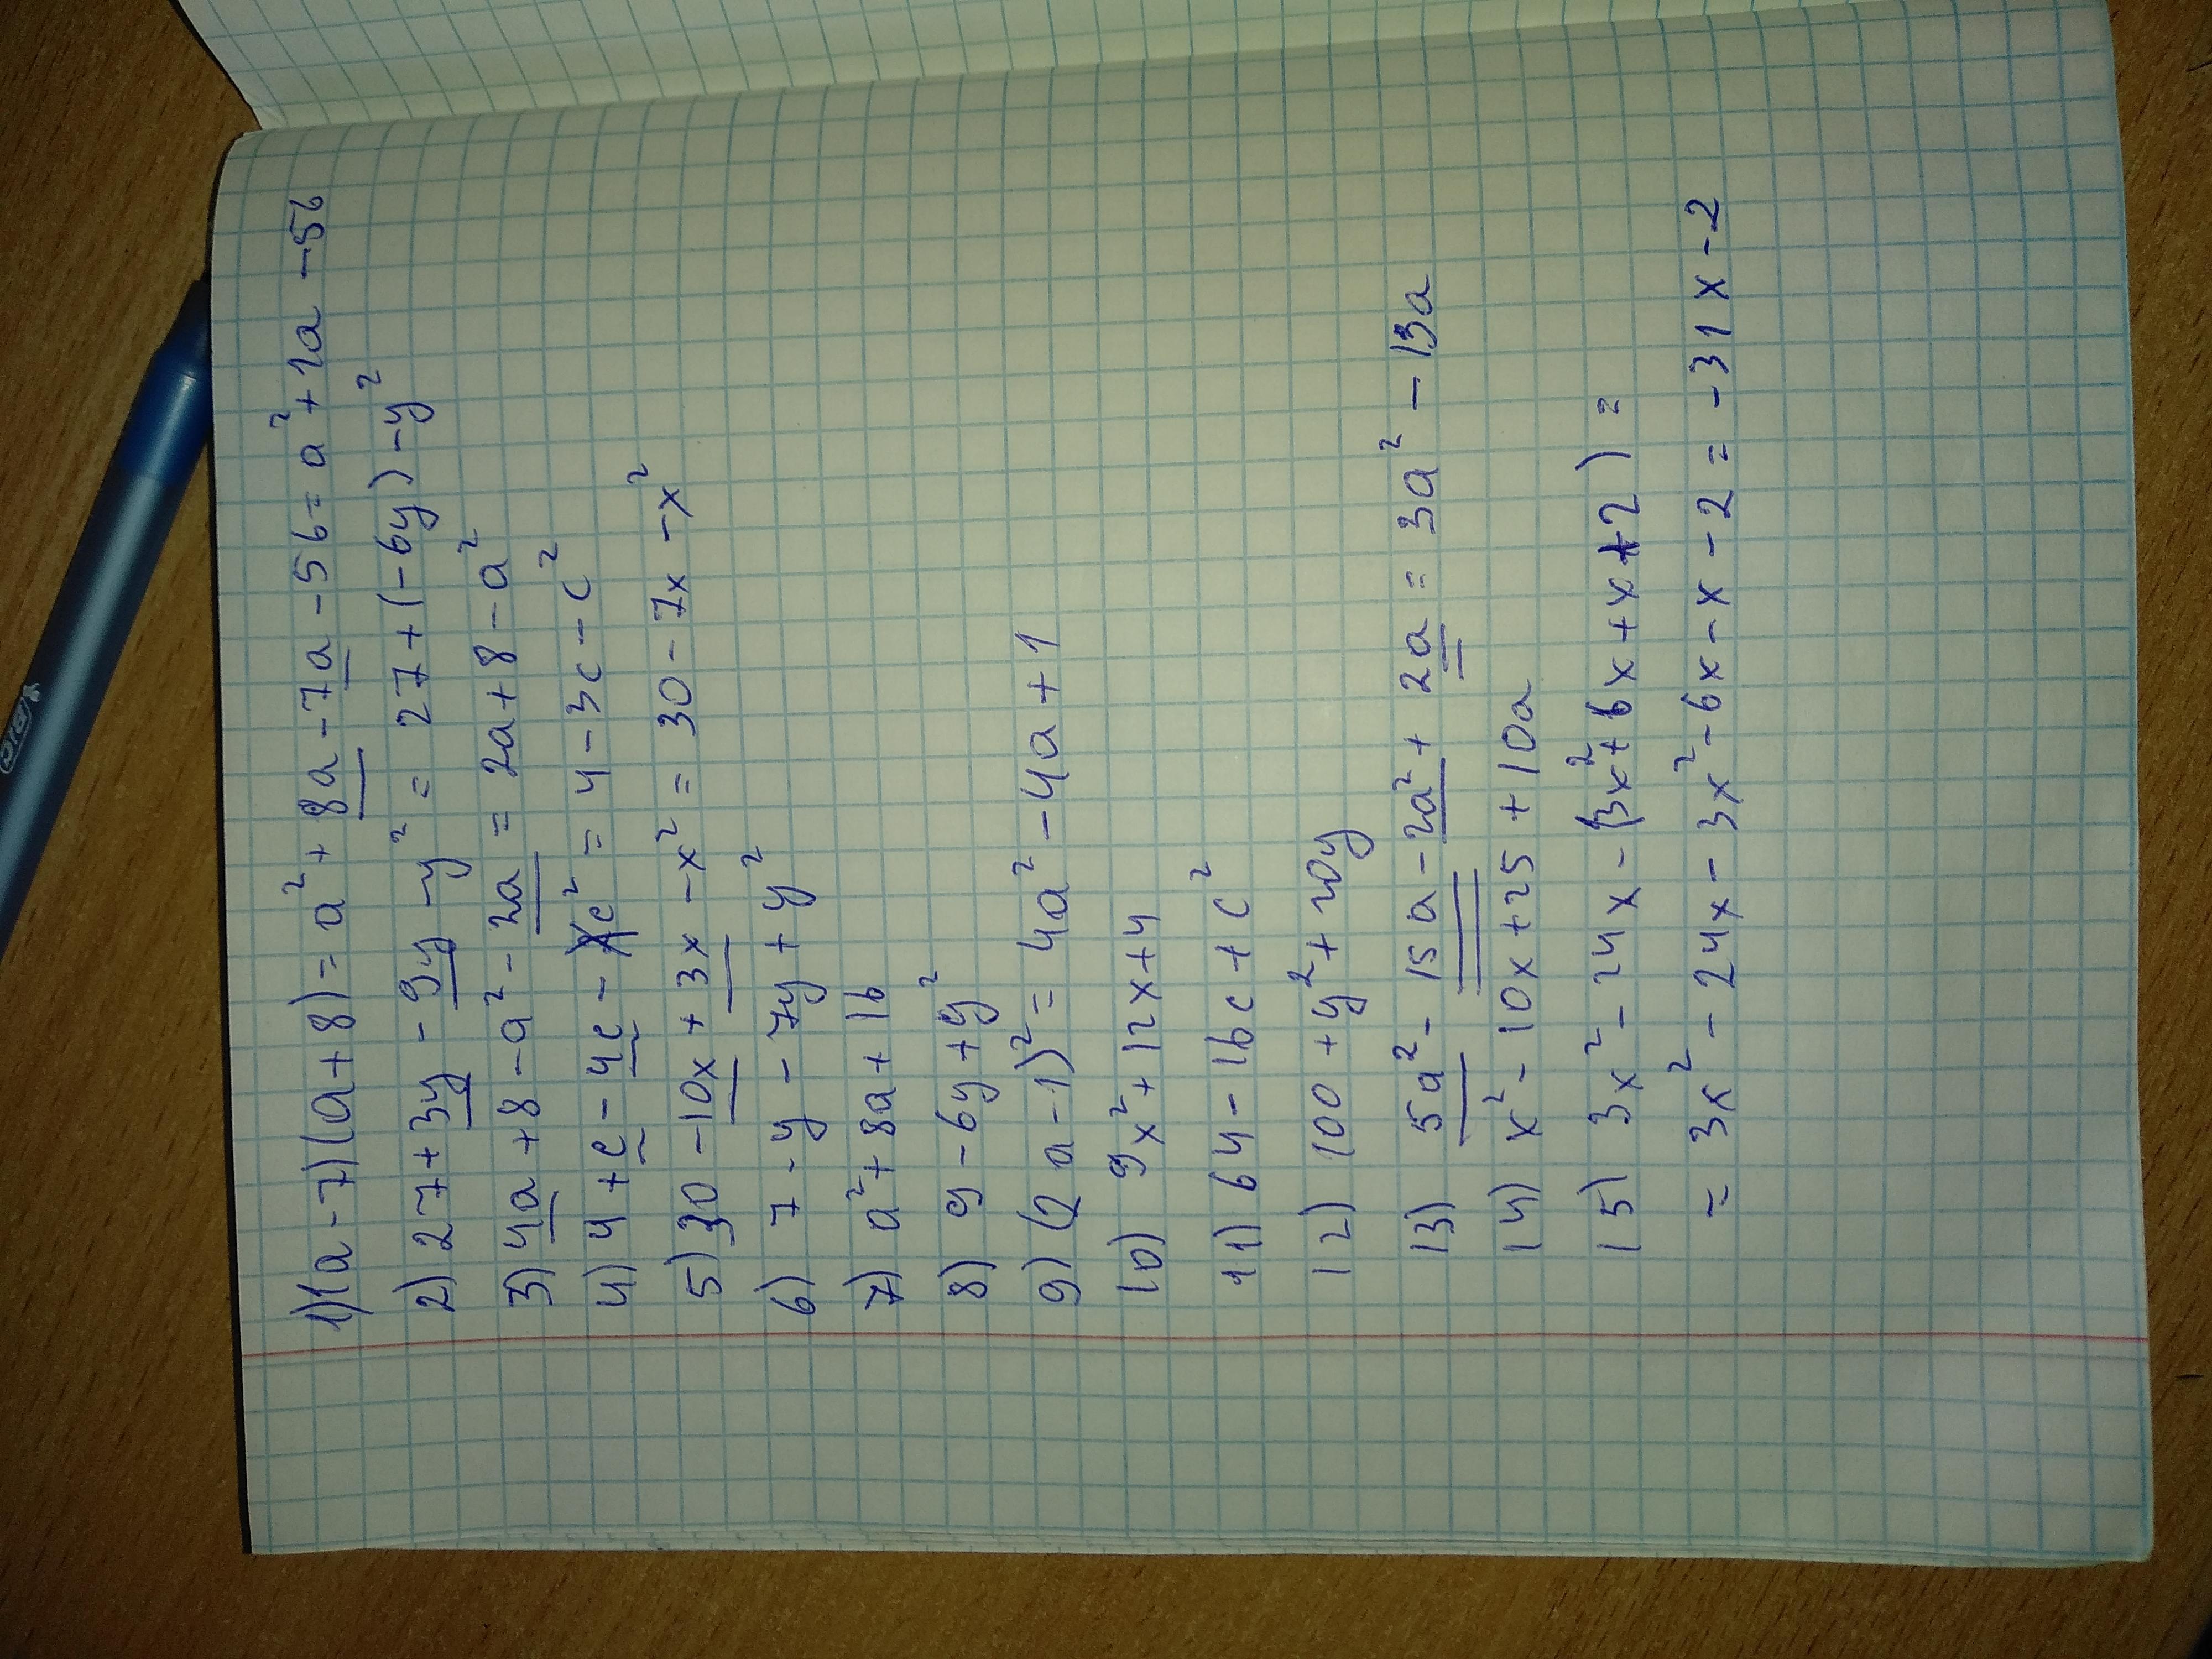 1) (a-7)(a+8)=a²+8a-7a-56=a²+1a-56
2) 27+3y-9y-y²=27+(-6y)-y²
3) 4a+8-a²-2a=2a+8-a²
4) 4+c-4c-c²=4-3c-c²
5) 30-10x+3x-x²=30-7x-x²
6) 7-y-7y+y²
7) a²+8a+16
8) 9-6y+y²
9) (2a-1)²=4a²-4a+1
10) 9x²+12x+4
11) 64-16c+c²
12) 100+y²+20y
13) 5a²-15a-2a²+2a=3a²-13a
14) x²-10x+25+10a
15) 3x²-24x-(3x²+6x+x+2)=
=3x²-24x-3x²-6x-x-2=-31x-2
Orig